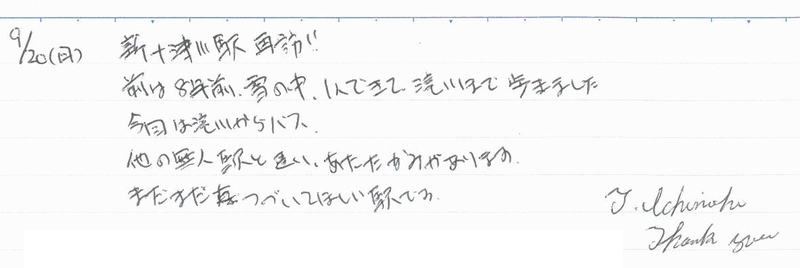 9/20(日) 新十津川駅 再訪!!
前は8年前、雪の中、1人できて、滝川まで歩きました
今回は滝川からバス、
他の無人駅と違い、あたたかみがあります。
まだまだ つづいてほしい駅です。
Thank you